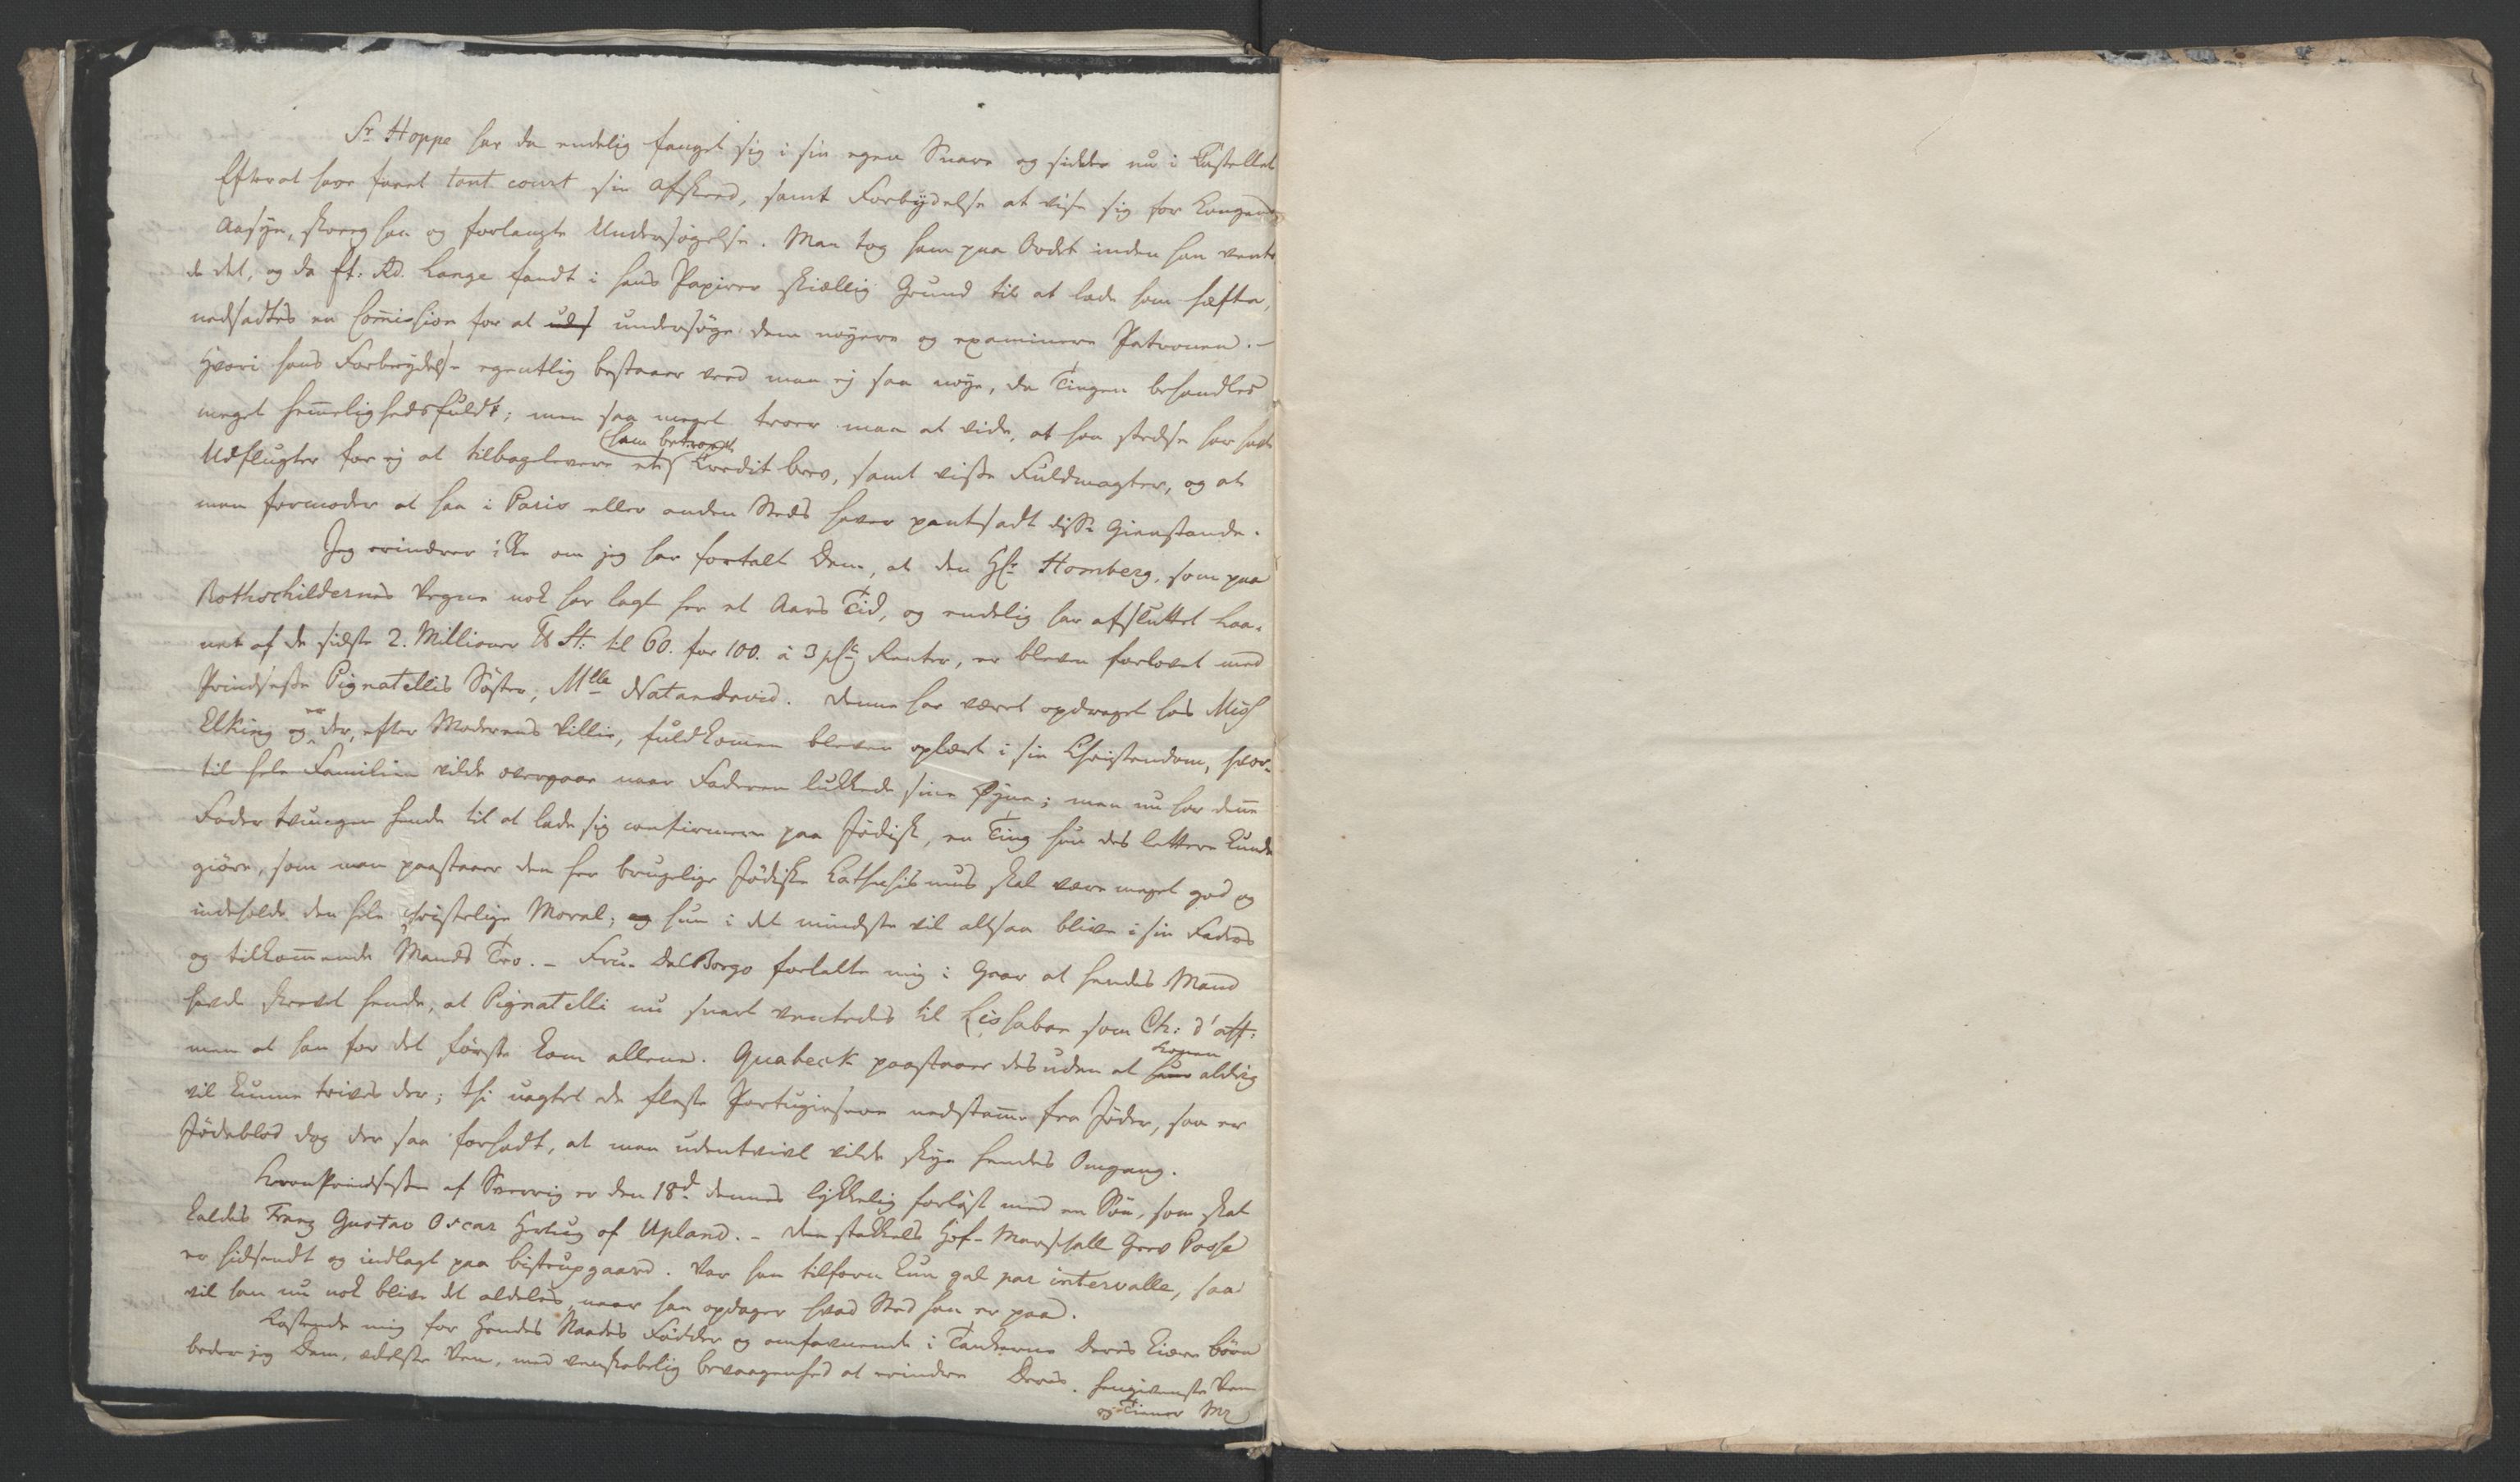 Sr Hoppe har da endelig fanget sig i sin egen Snare og sidder nu i Kastellet
Efterat have faaet tout court sin Afskeed, samt Forbydelse at vise sig for Kongens
Aasyn, skreeg han og forlangte Undersøgelse. Man tog ham paa Ordet inden han vente-
de det, og da Et: Rd. Lange fandt i hans Papirer skiællig Grund til at lade ham hæfte,
nedsadtes en Com̅ission for at uds undersøge dem nøyere og examinere Patronen. –
Hvori hans Forbrydelse egentlig bestaaer veed man ej saa nøje, da Tingen behandles
meget hem̅elighedsfuldt; men saa meget troer man at vide, at han stedse har havt
Udflugter for ej at tilbagelevere et ham betroet Kredit brev, samt visse Fuldmagter, og at
man formoder at han i Paris eller anden Steds haver pantsadt disse Gienstande.
Jeg erindrer ikke om jeg har fortalt Dem, at den Hr Homberg, som paa
Rothschildernes Vegne nok har lagt her et Aars Tid, og endelig har afsluttet Laa-
net af de sidste 2. Millioner ℔ St: til 60. for 100. à 3 pCt Renter, er bleven forlovet med
Prindsesse Pignatellis Søster, Mlle Natandavid. Denne har været opdraget hos Miss
Elking og er der, efter Moderens Villie, fuldkomen bleven oplært i sin Christendom, hvor-
til hele Familien vilde overgaae naar Faderen lukkede sine Øyne; men nu har den̅e
Fader tvungen hende til at lade sig confirmere paa Jødisk, en Ting hun des lettere kunde
giøre, som man paastaaer den her brugelige Jødiske Kathekismus skal være meget god og
indeholde den hele christelige Moral; og hun i det mindste vil altsaa blive i sin Faders
og tilkom̅ende Mands Tro. – Fru DalBorgo fortalte mig i Gaar at hendes Mand
havde skrevet hende, at Pignatelli nu snart ventedes til Lissabon som Ch: d'aff:
men at han for det første kom allene. Quabeck paastaaer desuden at hun Konen aldrig
vil kunne trives der; thi uagtet de fleste Portugiesere nedstam̅e fra Jøder, saa er
Jødeblod dog der saa forhadt, at man udentvivl vilde skye hendes Omgang.
KronPrindsessen af Sverrig er den 18d dennes lykkelig forløst med en Søn, som skal
kaldes Franz Gustav Oscar Hertug af Upland. – Den stakkels Hof-Marschall Grev Posse
er hidsendt og indlagt paa Bistrupgaard. Var han tilforn kun gal par intervalle, saa
vil han nu nok blive det aldeles, naar han opdager hvad Sted han er paa.
Kastende mig for Hendes Naades Fødder og omfavnende i Tankerne Deres kiære Børn
beder jeg Dem, ædelste Ven, med venskabelig bevaagenhed at erindre Deres hengivenste Ven
og Tiener Mz